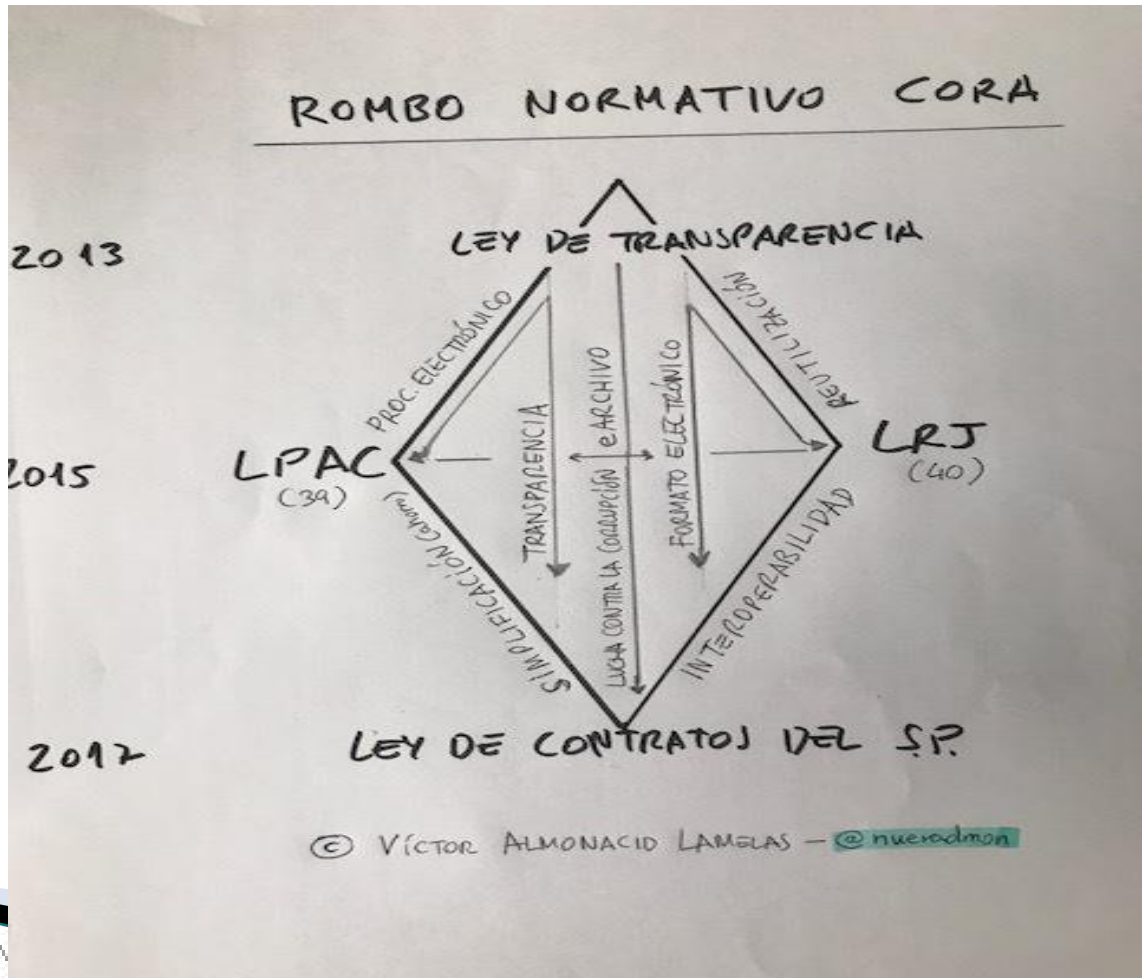 ROMBO NORMATIVO CORA
2013
LEY DE TRANSPARENCIA
PROC. ELECTRÓNICO
REUTILIZACIÓN
TRANSPARENCIA
eARCHIVO
LUCHA CONTRA LA CORRUPCIÓN
FORMATO ELECTRÓNICO
2015
LPAC
(39)
LRJ
(40)
SIMPLIFICACIÓN (ahorro)
INTEROPERABILIDAD
2017
LEY DE CONTRATOS DEL S.P.
© VÍCTOR ALMONACID LAMELAS - @nuevadmon